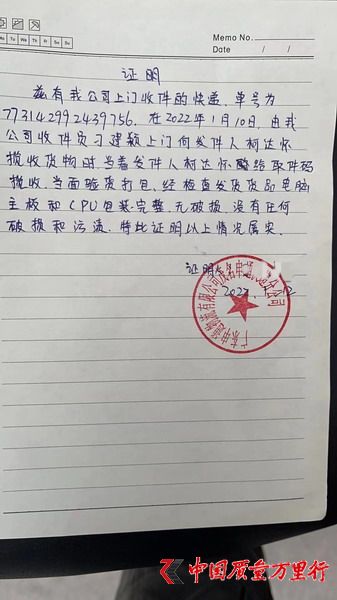 Mo Tu We Th Fr Sa Su
Memo No.
Date / /
证明
兹有我公司上门收件的快递、单号为
773142992439756. 在2022年1月10日,由我
公司收件员习建颖上门向发件人柯达怀
揽收货物时当着发件人柯达怀 给取件码
揽收.当面验货打包,经检查发货货品电脑
主板和CPU包装完整.无破损.没有任何
破损和污渍.特此证明以上情况属实.
证明
2022.
广东申通物流有限公司茂名申通 分公司
中国质量万里行